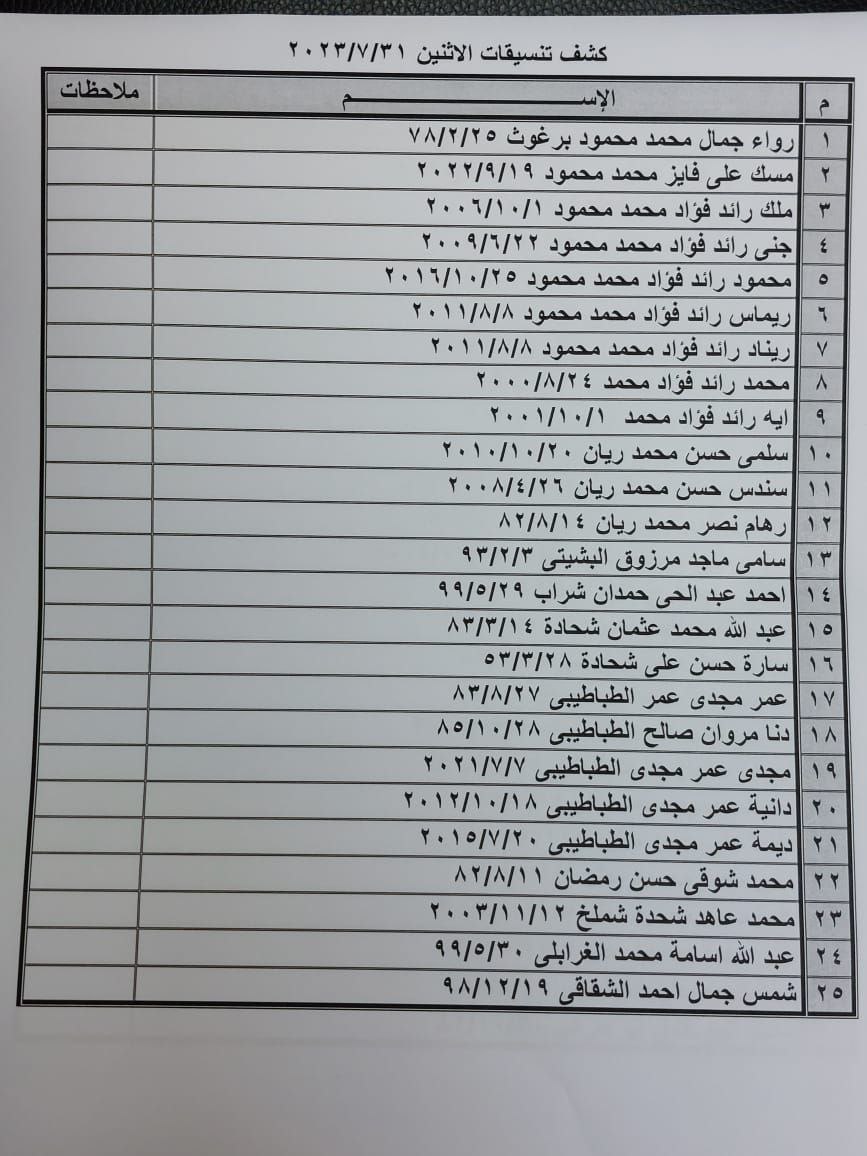 كشف تنسيقات الاثنين ٢٠٢٣/٧/٣١
م الإســـــــــــــم ملاحظات
١ رواء جمال محمد محمود برغوث ٧٨/٢/٢٥
٢ مسك على فايز محمد محمود ٢٠٢٢/٩/١٩
٣ ملك رائد فؤاد محمد محمود ٢٠٠٦/١٠/١
٤ جنى رائد فؤاد محمد محمود ٢٠٠٩/٦/٢٢
٥ محمود رائد فؤاد محمد محمود ٢٠١٦/١٠/٢٥
٦ ريماس رائد فؤاد محمد محمود ٢٠١١/٨/٨
٧ ريناد رائد فؤاد محمد محمود ٢٠١١/٨/٨
٨ محمد رائد فؤاد محمد ٢٠٠٠/٨/٢٤
٩ ايه رائد فؤاد محمد ٢٠٠١/١٠/١
١٠ سلمى حسن محمد ريان ٢٠١٠/١٠/٢٠
١١ سندس حسن محمد ريان ٢٠٠٨/٤/٢٦
١٢ رهام نصر محمد ريان ٨٢/٨/١٤
١٣ سامى ماجد مرزوق البشيتى ٩٣/٢/٣
١٤ احمد عبد الحى حمدان شراب ٩٩/٥/٢٩
١٥ عبد الله محمد عثمان شحادة ٨٣/٣/١٤
١٦ سارة حسن على شحادة ٥٣/٣/٢٨
١٧ عمر مجدى عمر الطباطيبى ٨٣/٨/٢٧
١٨ دنا مروان صالح الطباطيبى ٨٥/١٠/٢٨
١٩ مجدى عمر مجدى الطباطيبى ٢٠٢١/٧/٧
٢٠ دانية عمر مجدى الطباطيبى ٢٠١٢/١٠/١٨
٢١ ديمة عمر مجدى الطباطيبى ٢٠١٥/٧/٢٠
٢٢ محمد شوقى حسن رمضان ٨٢/٨/١١
٢٣ محمد عاهد شحدة شملخ ٢٠٠٣/١١/١٢
٢٤ عبد الله اسامة محمد الغرابلى ٩٩/٥/٣٠
٢٥ شمس جمال احمد الشقاقى ٩٨/١٢/١٩